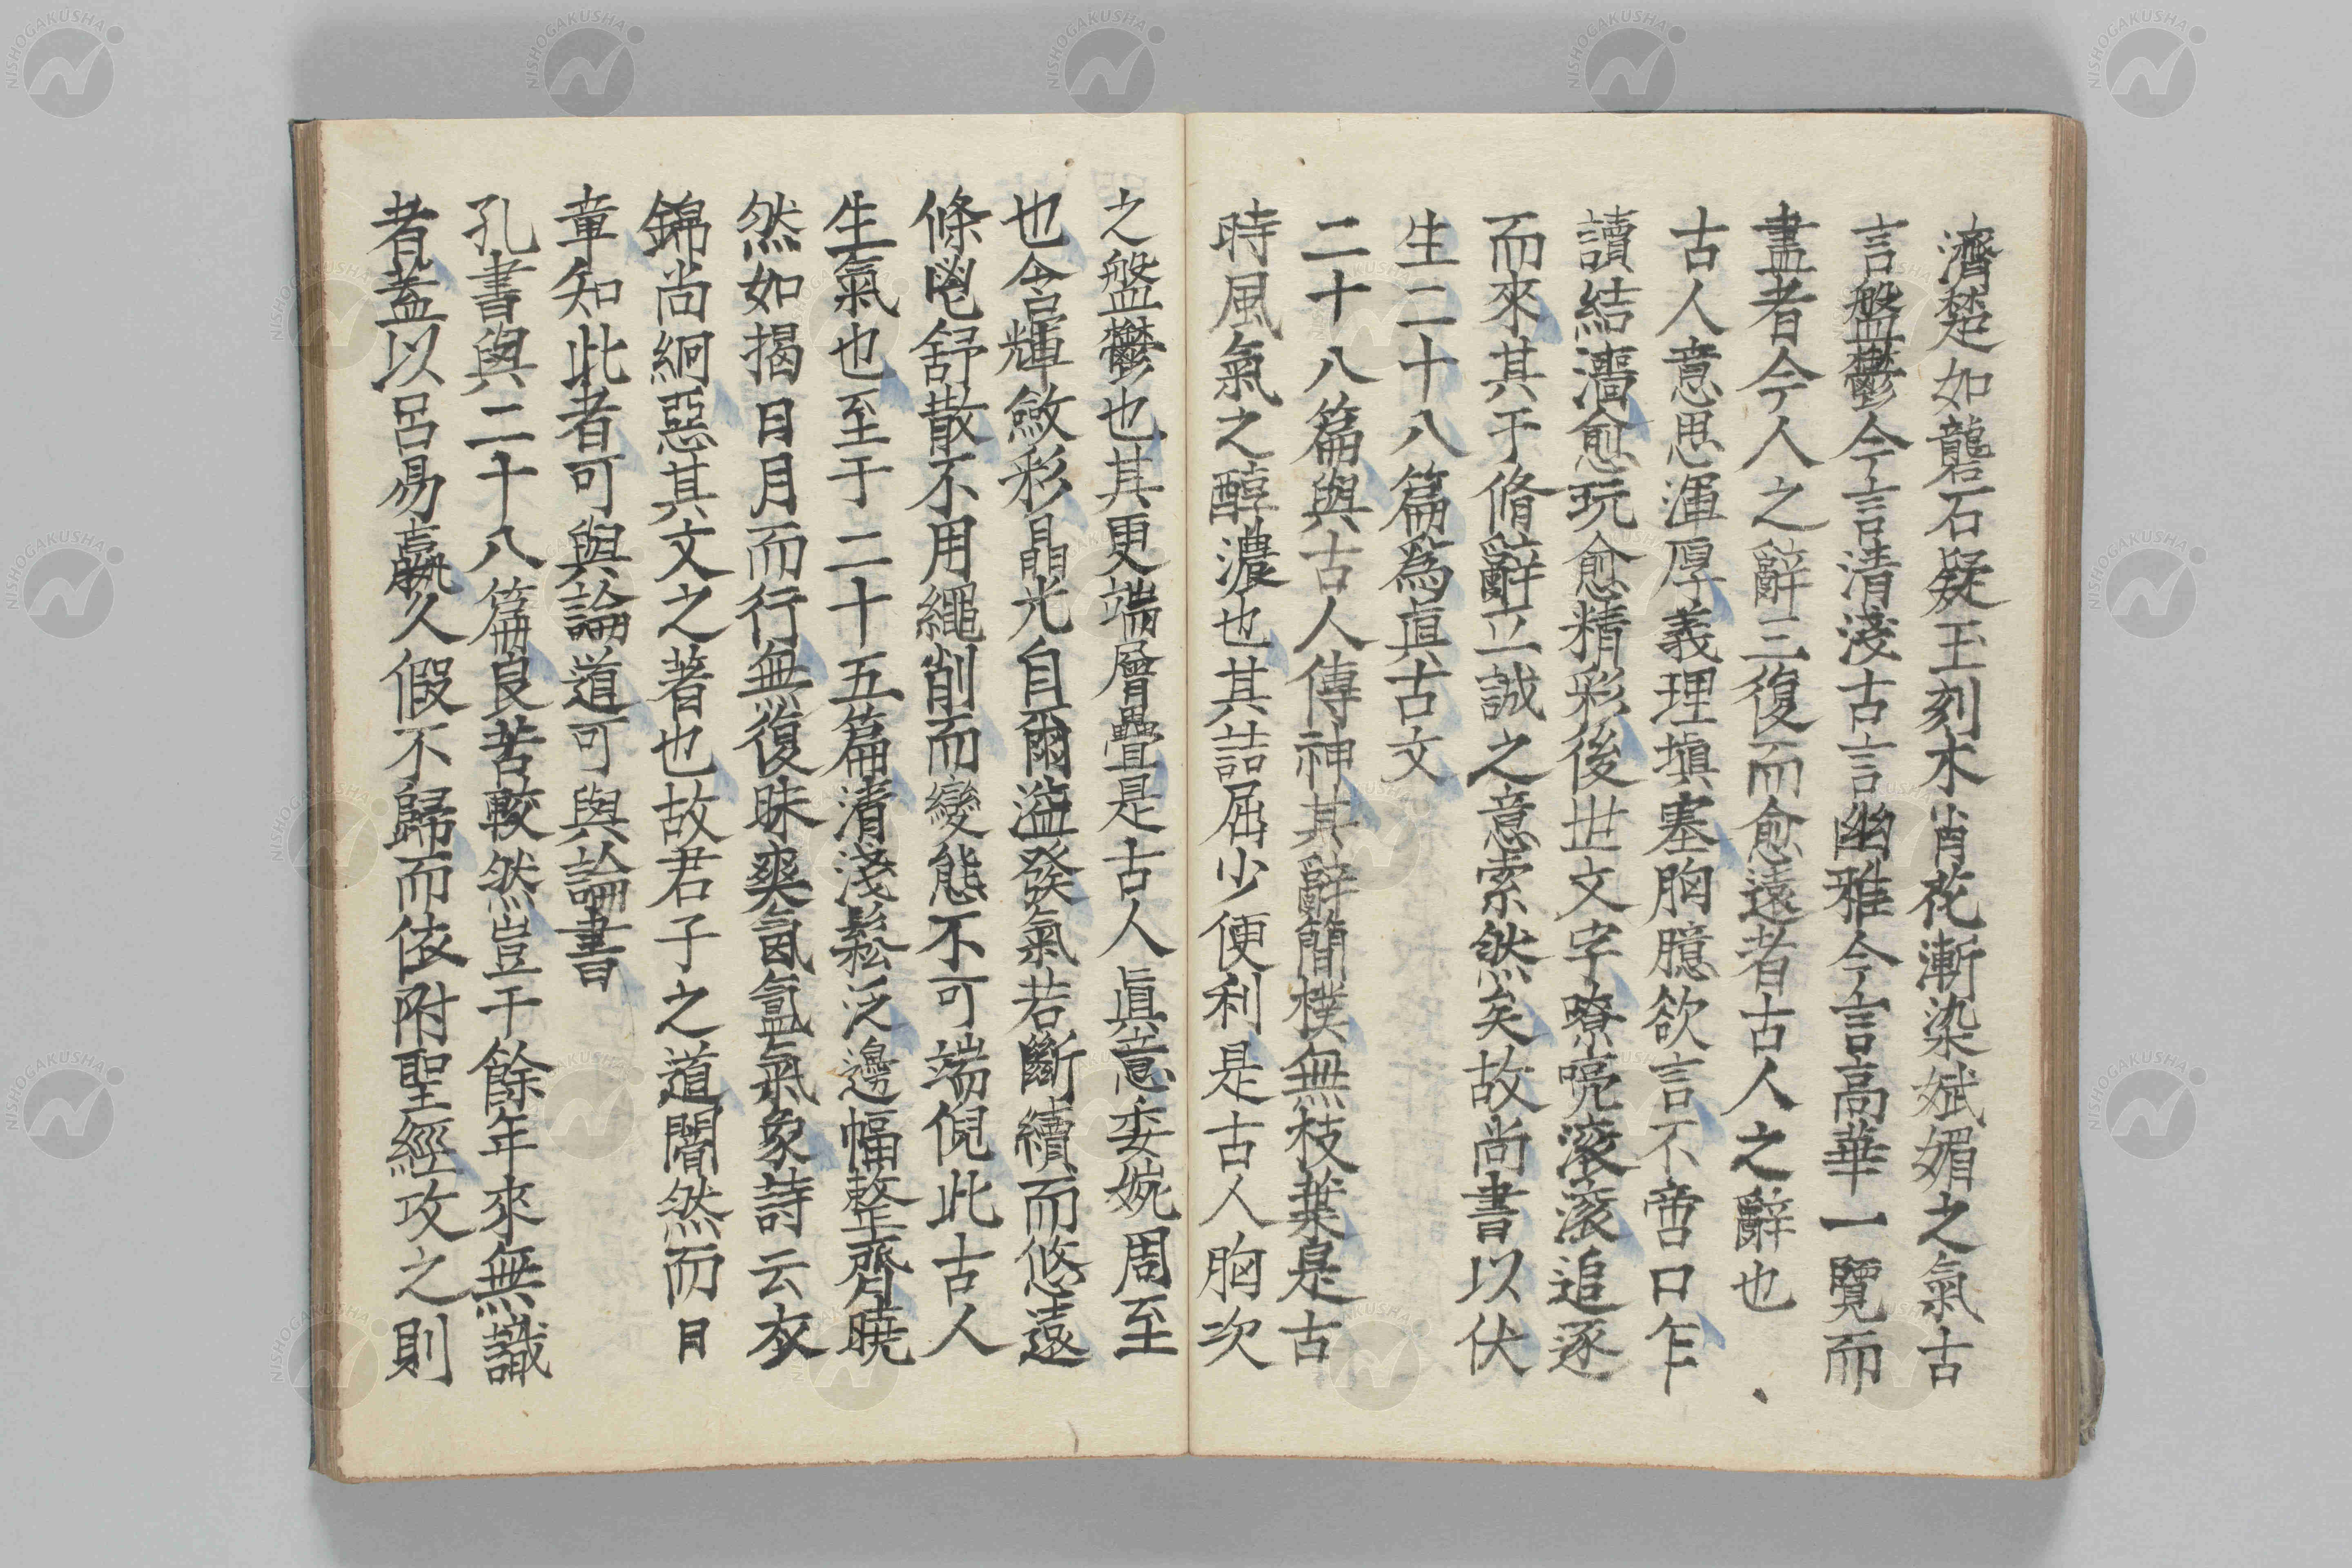 濟楚如礱石疑玉刻木肖花漸染娬媚之氣古
言盤鬱今言清淺古言幽雅今言高華一覽而
盡者今人之辭三復而愈遠者古人之辭也
古人意思渾厚義理塡塞胸臆欲言不啻口乍
讀結濇愈玩愈精彩後世文字嘹亮滾滾追逐
而來其于脩辭立誠之意索然矣故尚書以伏
生二十八篇爲眞古文
二十八篇與古人傳神其辭簡樸無枝葉是古
時風氣之醇濃也其詰屈少便利是古人胸次
之盤鬱也其更端層疊是古人眞意委婉周至
也含輝斂彩晶光自爾溢發氣若斷續而悠遠
條鬯舒散不用繩削而變態不可端倪此古人
生氣也至于二十五篇清淺鬆泛邊幅整齊曉
然如揭日月而行無復昧爽氤氳氣象詩云衣
錦尚絅惡其文之著也故君子之道闇然而日
章知此者可與論道可與論書
孔書與二十八篇良苦較然豈千餘年來無識
者蓋以呂易嬴久假不歸而依附聖經攻之則
NISHOGAKUSHA